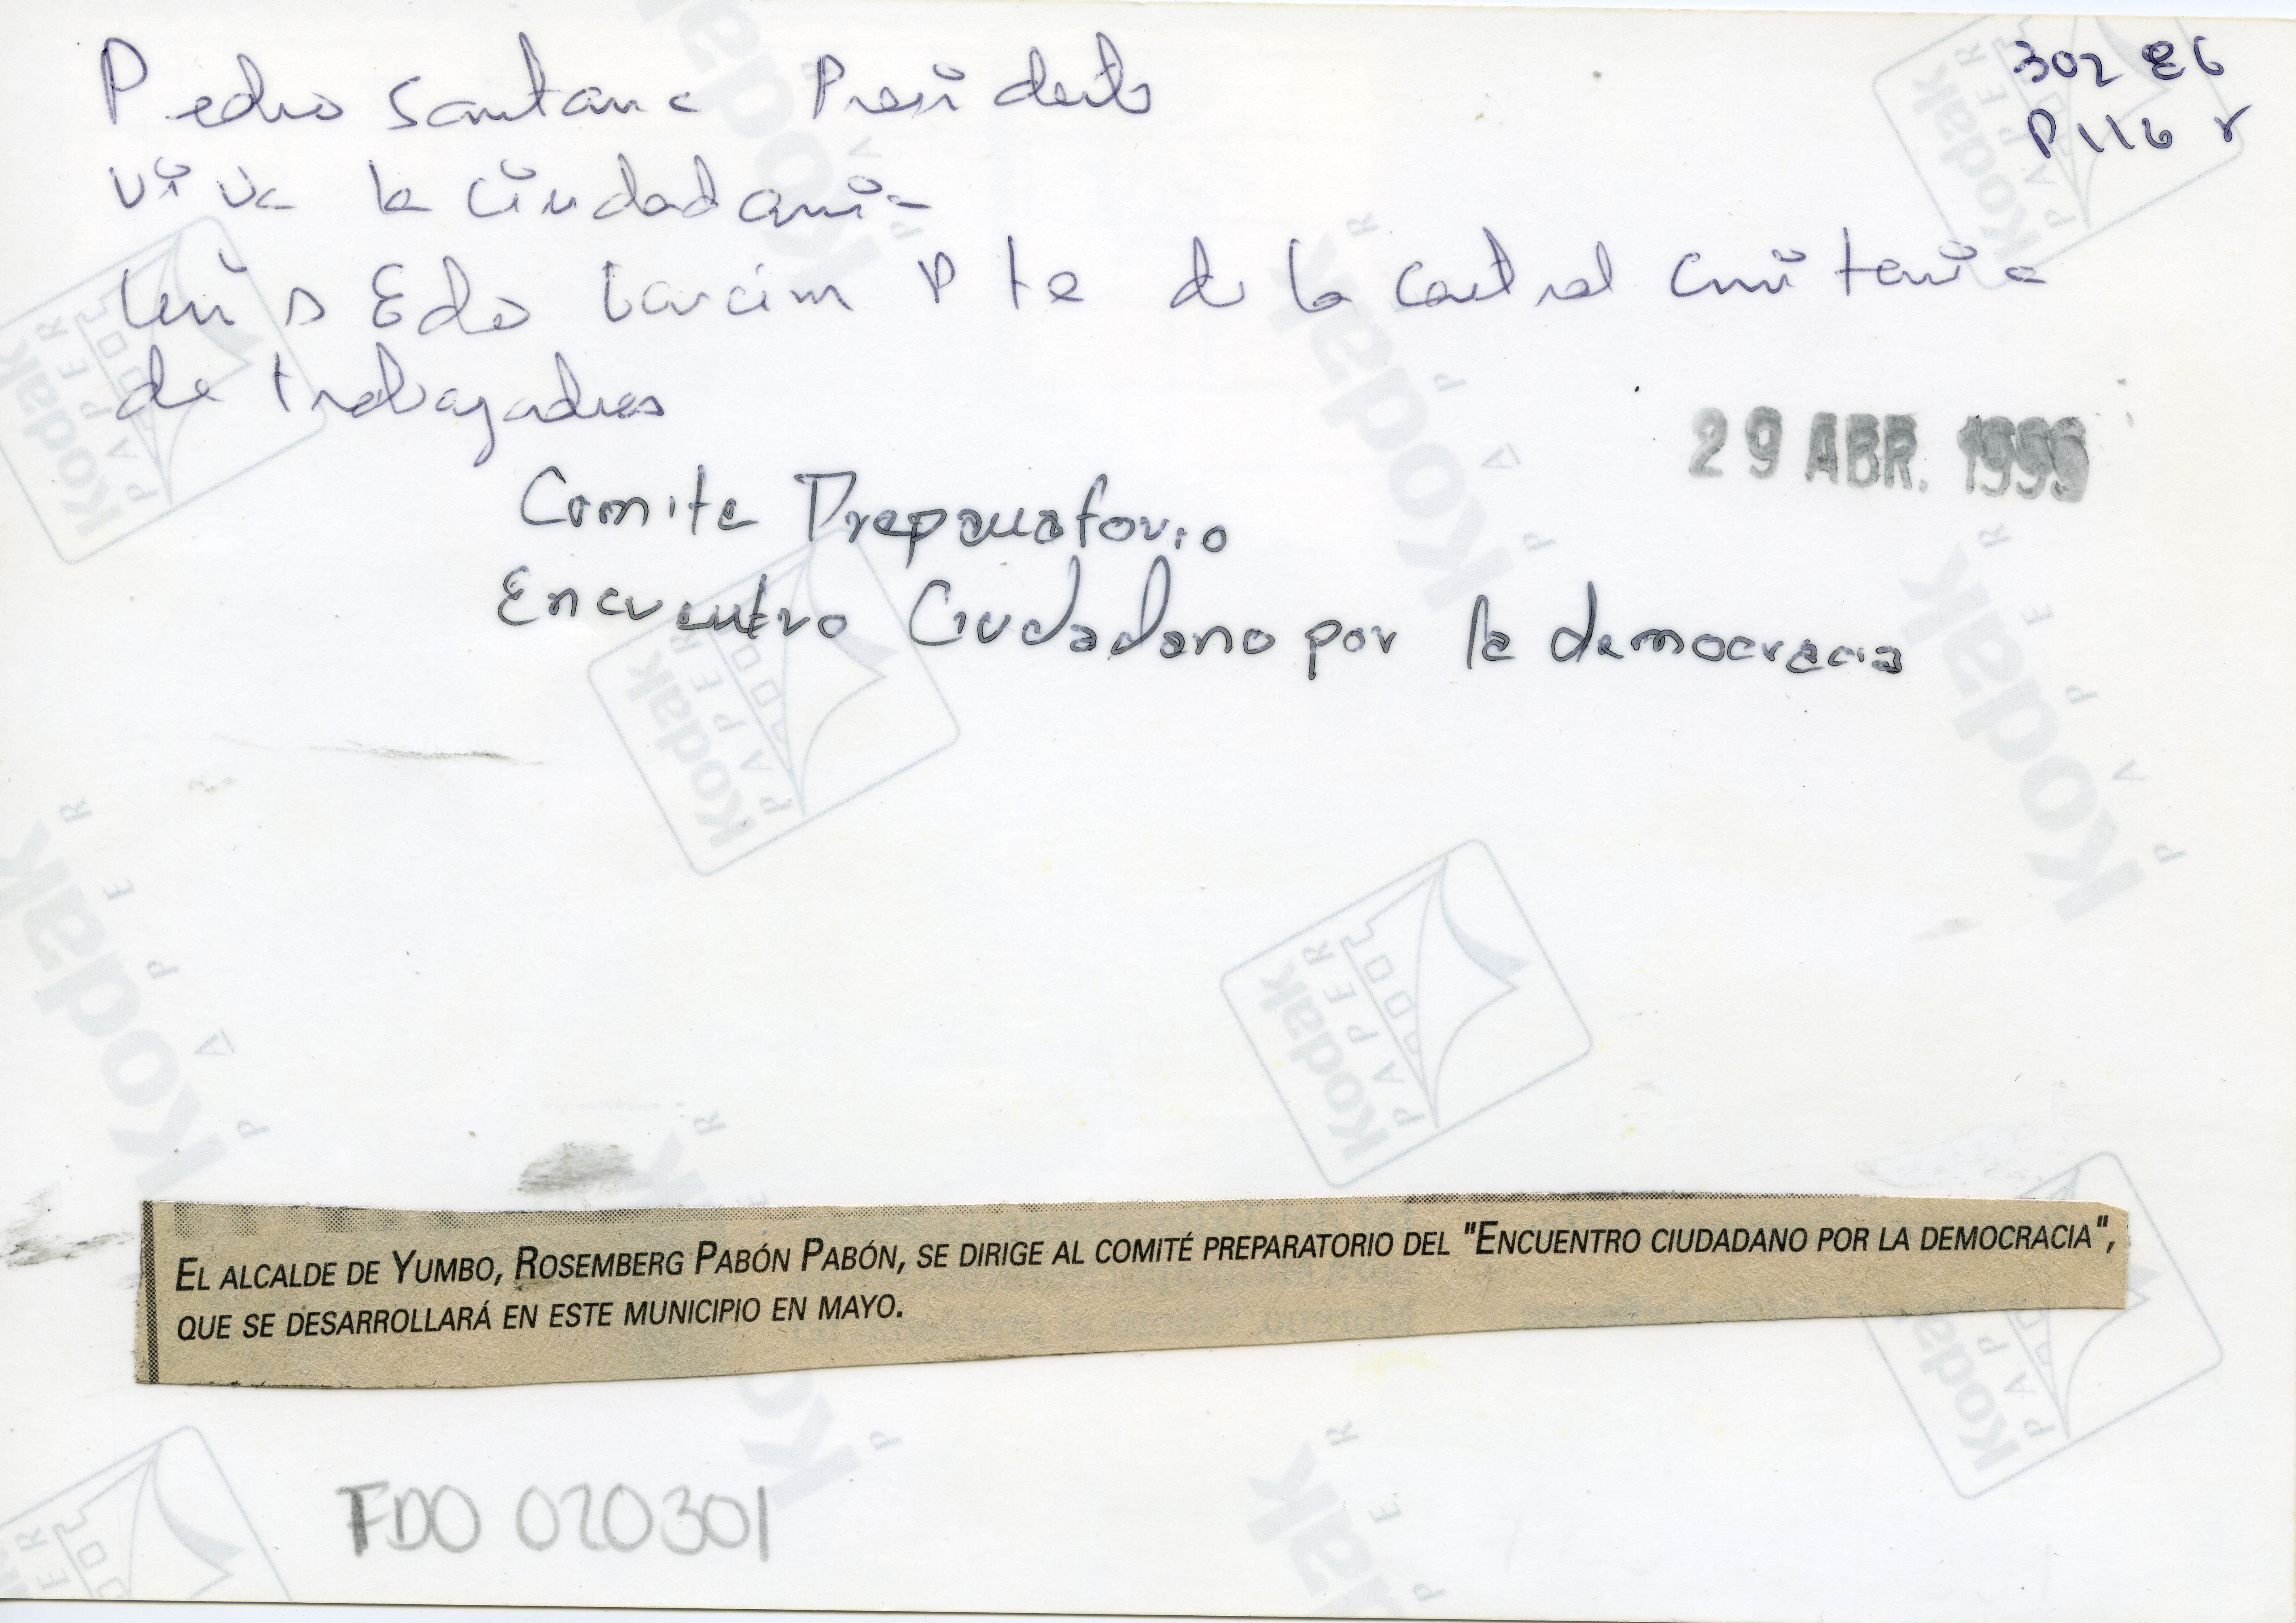 Pedro Santana Presidente
302 E6
P116 r
viva la ciudadania
Luis Edo Garcim Pte de la central unitaria
de trabajadores
29 ABR. 1999
Comite Preparatorio
Encuentro Ciudadano por la democracia
EL ALCALDE DE YUMBO, ROSEMBERG PABÓN PABÓN, SE DIRIGE AL COMITÉ PREPARATORIO DEL "ENCUENTRO CIUDADANO POR LA DEMOCRACIA",
QUE SE DESARROLLARÁ EN ESTE MUNICIPIO EN MAYO.
FDO 020301